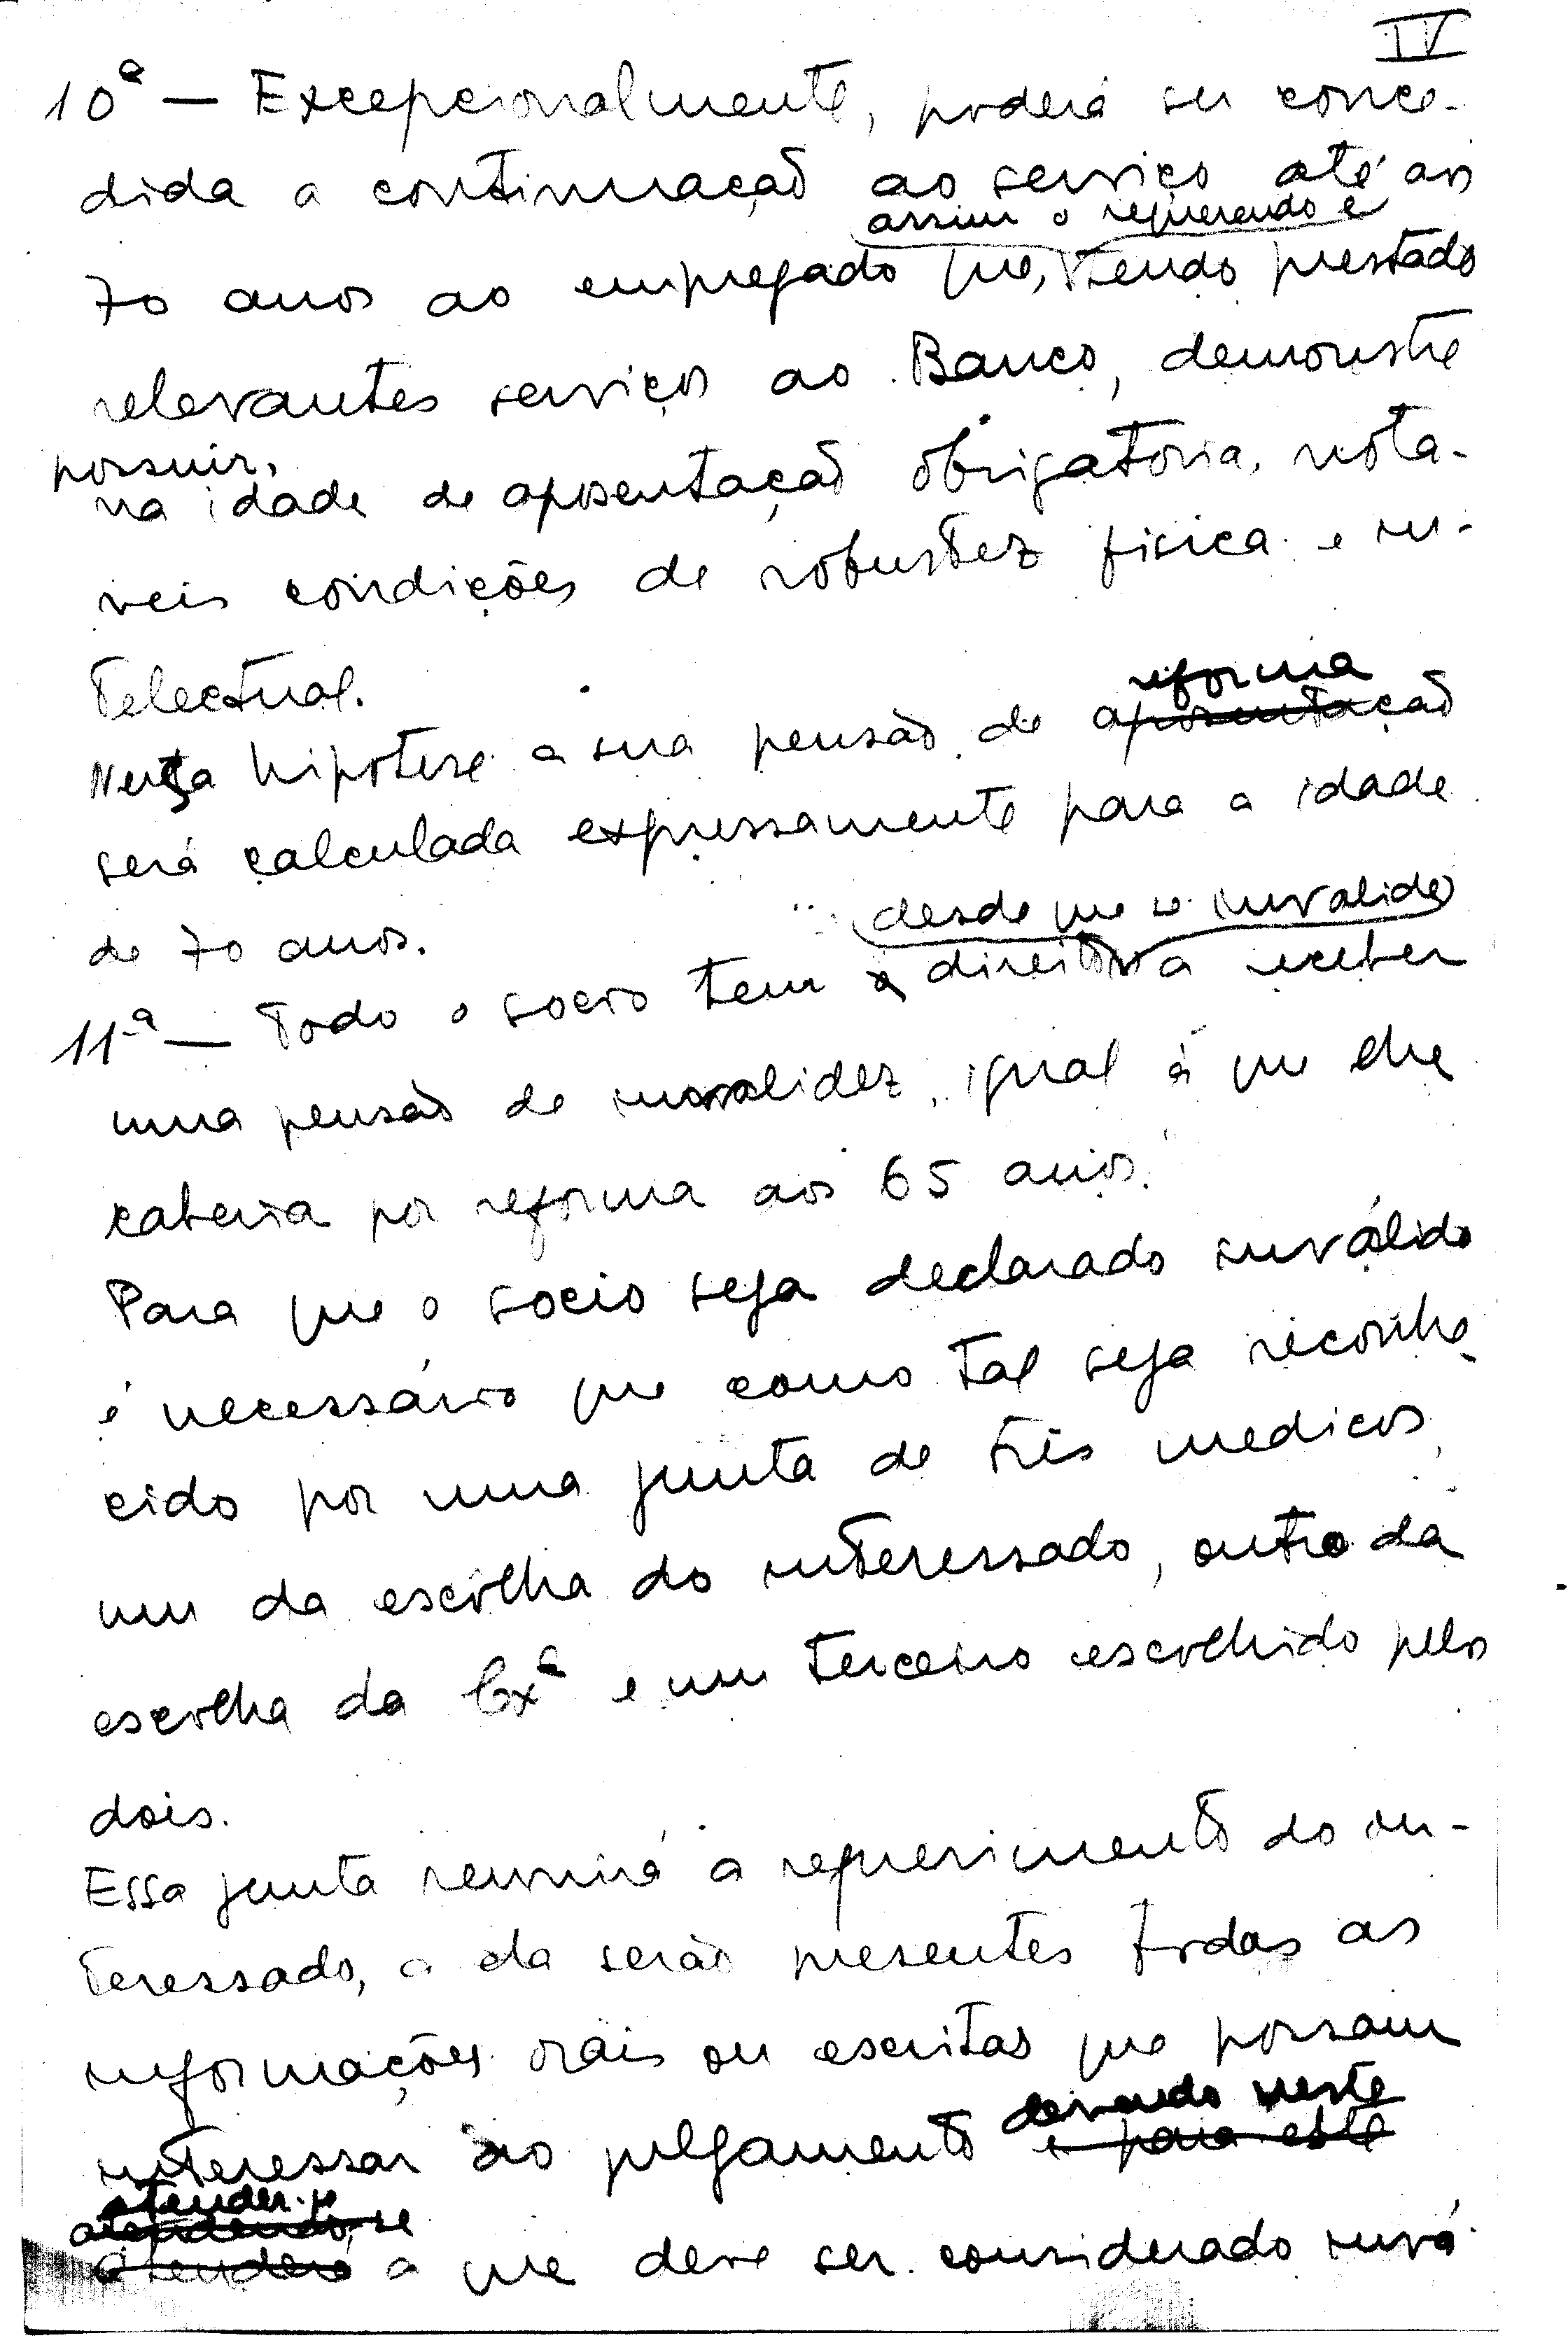 IV
10ª — Excepcionalmente, poderá ser conce-
dida a continuação ao serviço até aos
assim o requerendo e
70 anos ao empregado que, tendo prestado
relevantes serviços ao Banco, demonstre
possuir,
na idade de aposentação obrigatoria, nota-
veis condições de robustez fisica e in-
telectual.
reforma
Nesta hipotese a sua pensão de aposentação
será calculada expressamente para a idade
de 70 anos.
desde que se invalide
11ª — Todo o socio tem direito a receber
uma pensão de invalidez, igual á que lhe
caberia por reforma aos 65 anos.
Para que o socio seja declarado inválido
é necessário que como tal seja reconhe-
cido por uma junta de três medicos,
um da escolha do interessado, outro da
escolha da Cxª e um terceiro escolhido pelos
dois.
Essa junta reunirá a requerimento do in-
teressado, a ela serão presentes todas as
informações orais ou escritas que possam
devendo neste
interessar ao julgamento e para este
atender-se
atendendo-se
atenderá a que deve ser considerado invá-